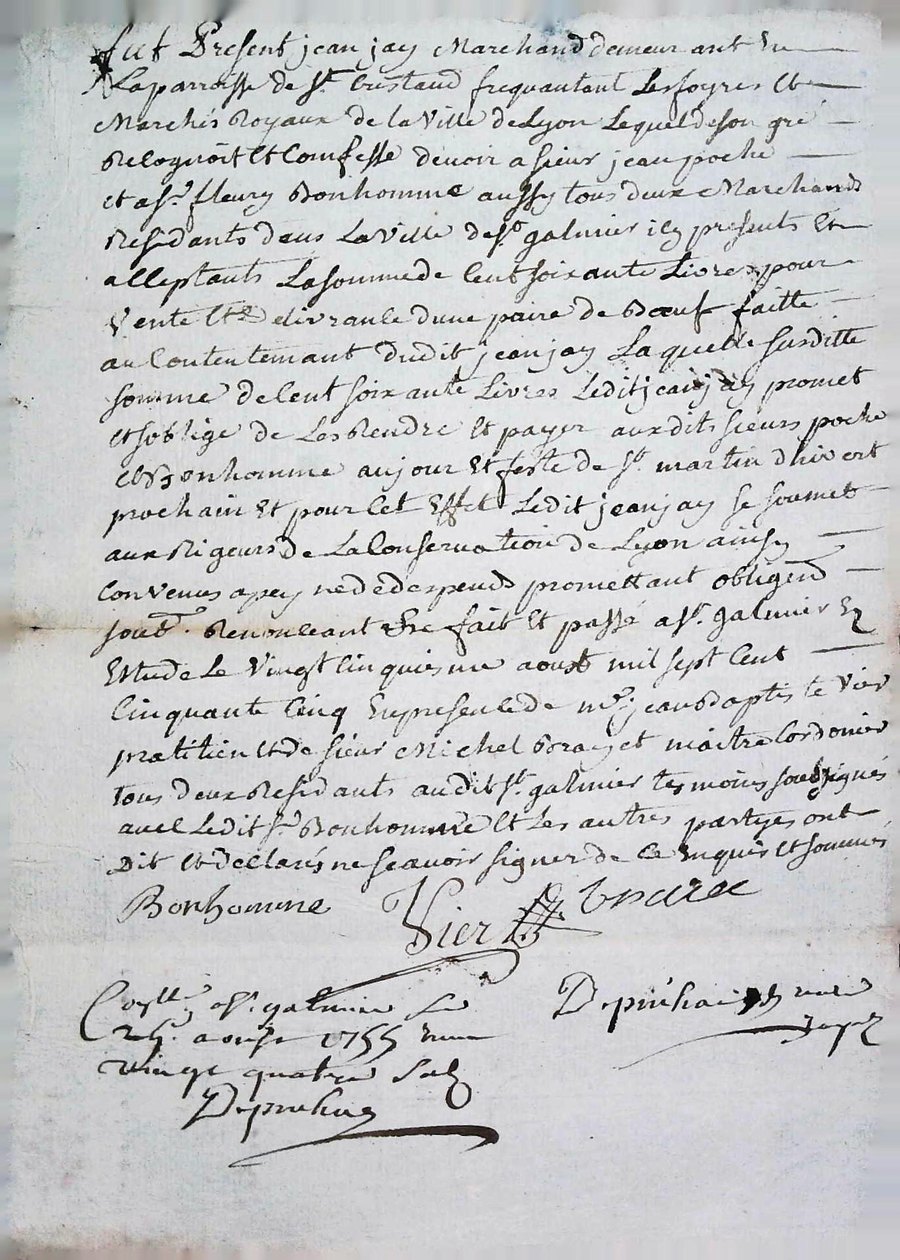 fut Present jean jay Marchand demeurant En
La parroisse de St. Eustaud frequantant Les foyres Et
Marchés Royaux de la Ville de Lyon Lequel de son gré
Recognoit Et Comfesse devoir a sieur jean poche
et a sr. fleury Bonhomme aussy tous deux Marchands
Residants dans La Ville de St galmier icy presents Et
acceptants La somme de Cent soixante Livres pour
Vente Et delivrance d'une paire de Bœuf faitte
au Contentemant dudit jean jay Laquelle susditte
somme de Cent soixante Livres Ledit jean jay promet
Et s'oblige de Les Rendre Et payer aux dits sieurs poche
Et Bonhomme au jour Et feste de St. martin d'hivert
prochain Et pour Cet Effet Ledit jean jay se soumet
aux Rigeurs de La Conservation de Lyon ainsy
Convenus a peyne de despends promettant obligend
soubt. Renonceant Etc fait Et passé a St. galmier En
Estude Le Vingt Cinquiesme aoust mil sept Cent
Cinquante Cinq En presence de me. jean Baptiste Vier
praticien Et de sieur Michel maitre Cordonier
tous deux Residants audit St. galmier tesmoins soubsignés
avec Ledit sr. Bonhomme Et Les autres partyes ont
Dit Et declarés ne scavoir signer de Ce Enquis Et sommés
Bonhomme Vier
a St. galmier Le
aoust 1755
vingt quatre sols